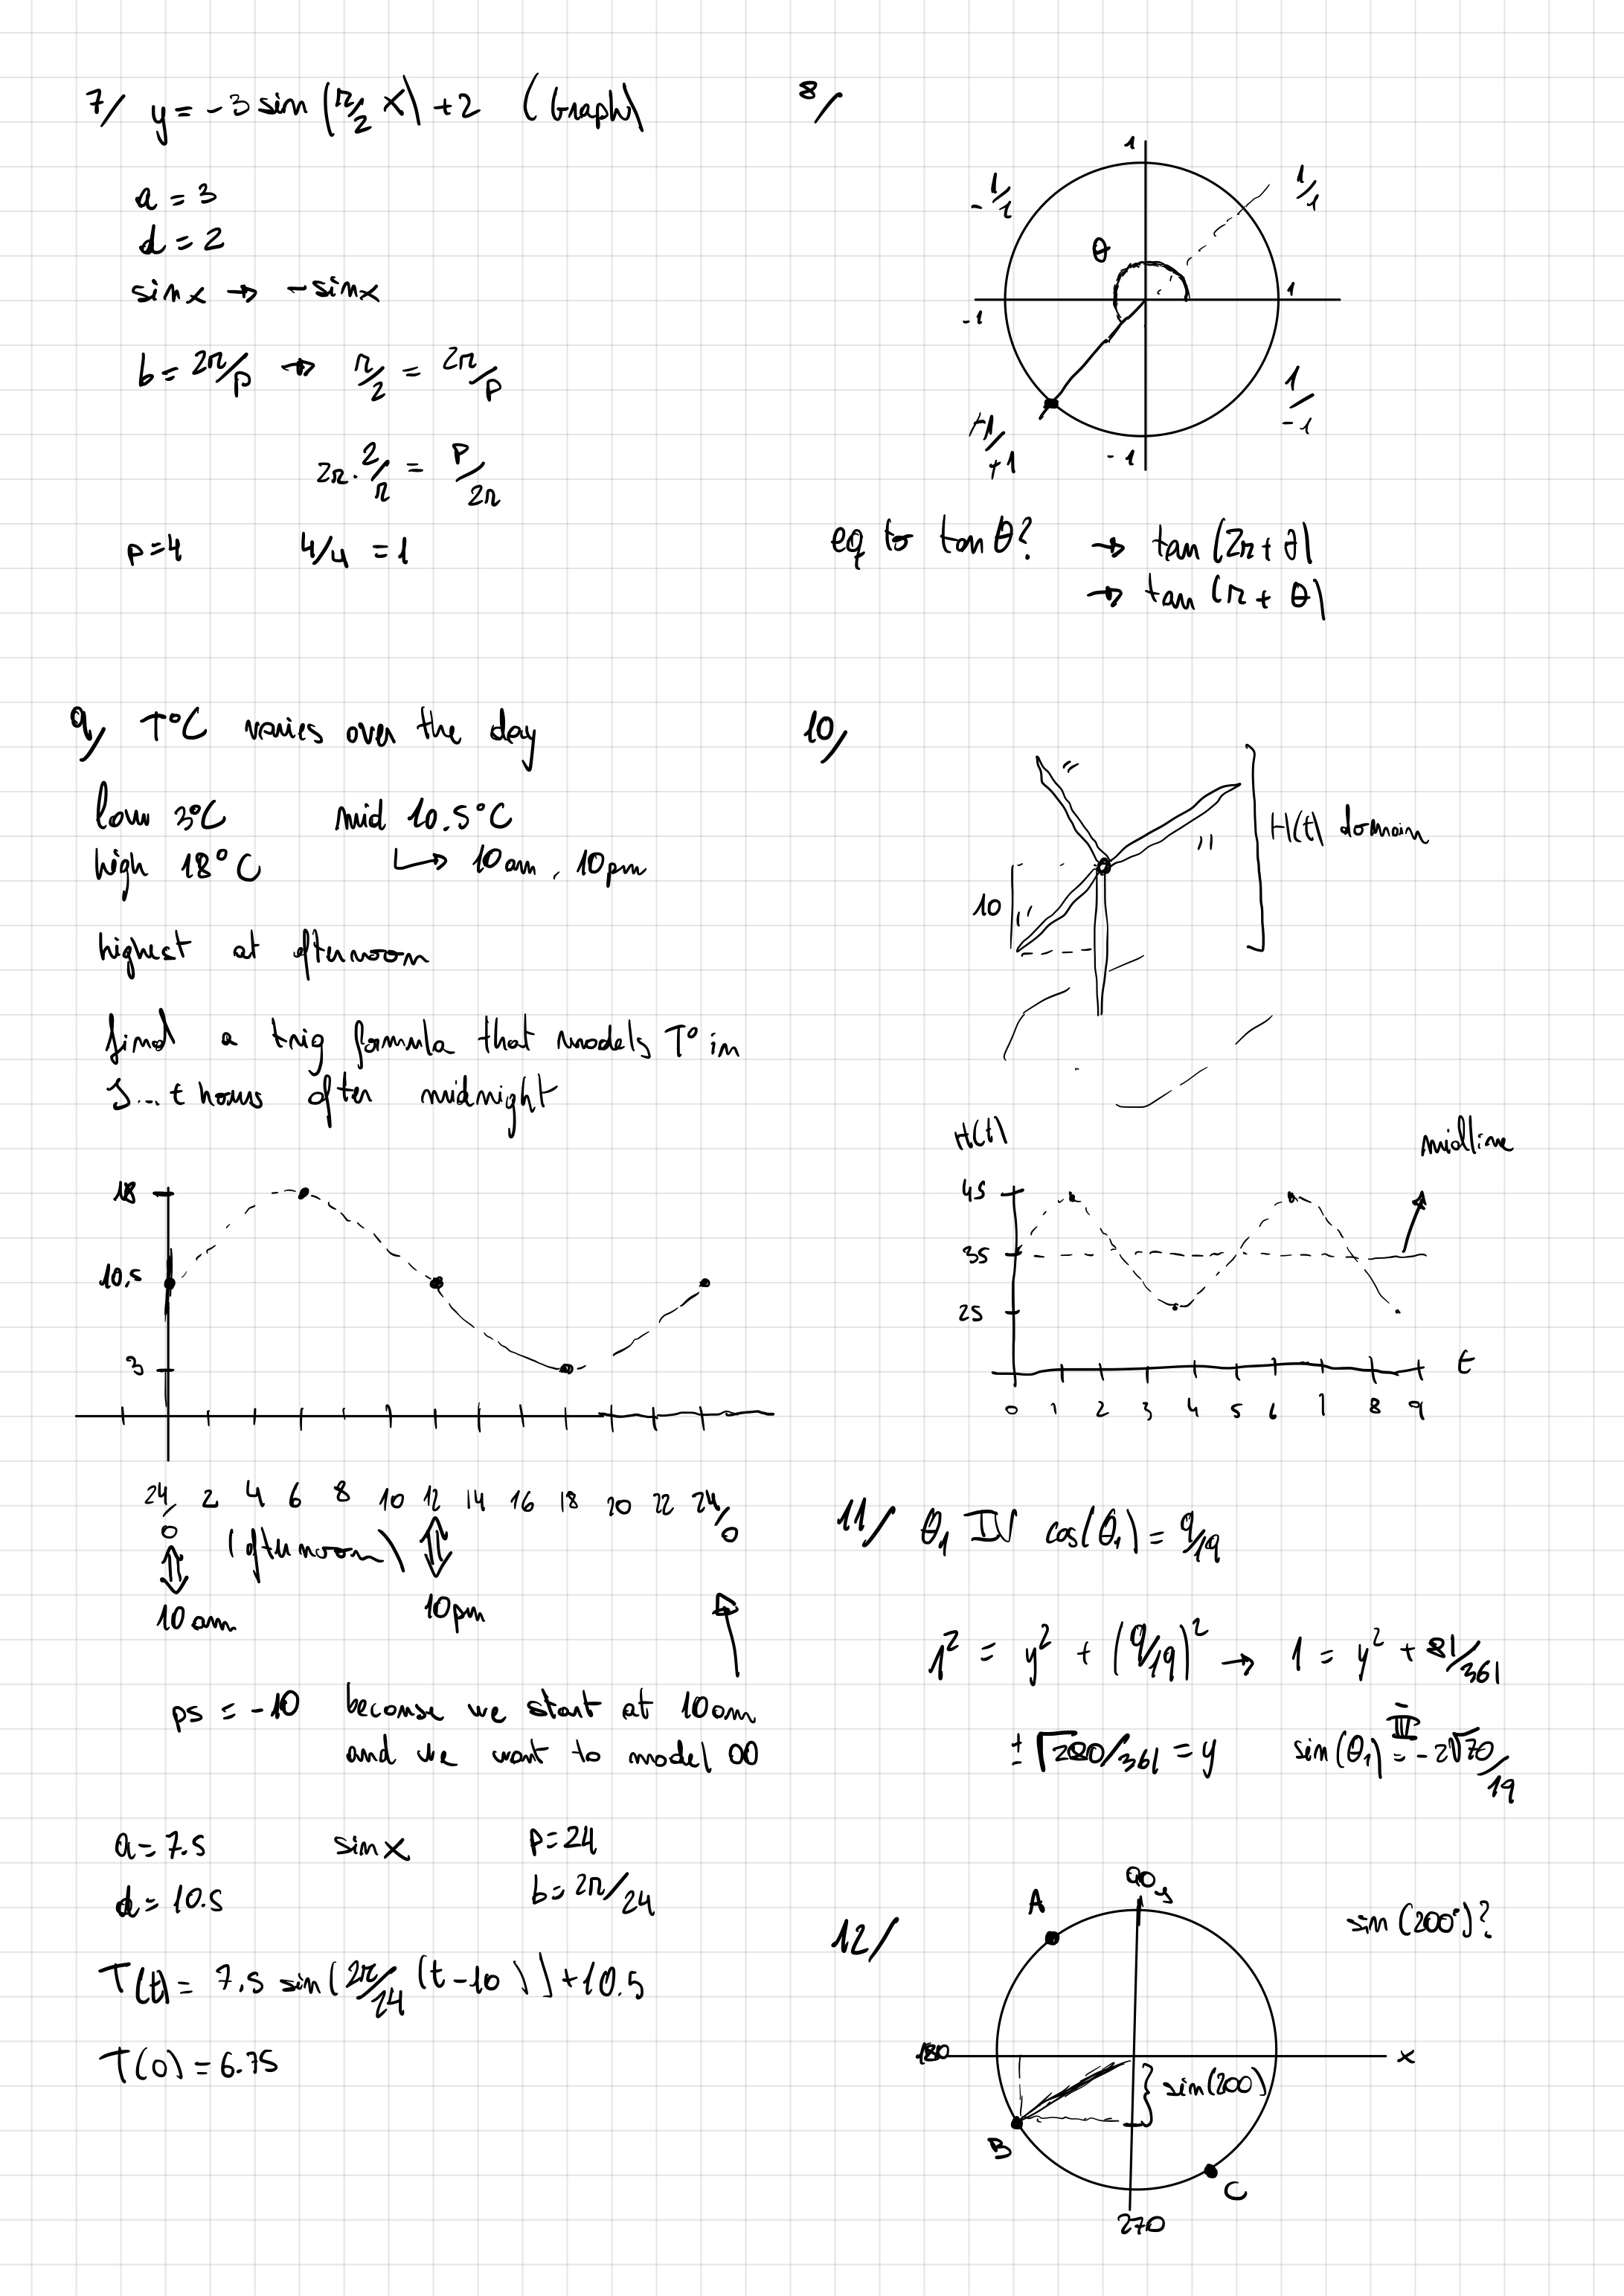 7/ y = -3 sin (π/2 x) + 2 (Graph)
a = 3
d = 2
sinx → -sinx
b = 2π/p → π/2 = 2π/p
2π · 2/π = p/2π
p=4 4/4 = 1
8/
1
-1/1
1/1
θ
-1
1
+1/+1
1/-1
-1
eq to tan θ? → tan (2π + θ)
→ tan (π + θ)
9/ T°C varies over the day
low 3°C mid 10.5°C
high 18°C ↳ 10am, 10pm
highest at afternoon
find a trig formula that models T° in
t hours after midnight
18
10.5
3
24/0 2 4 6 8 10 12 14 16 18 20 22 24/0
(afternoon)
10am
10pm
ps = -10 because we start at 10am
and we want to model 00
a = 7.5 sin x p=24
d = 10.5 b = 2π/24
T(t) = 7.5 sin (2π/24 (t-10)) + 10.5
T(0) = 6.75
10/
"
"
H(t) domain
10
"
H(t)
midline
45
35
25
t
0 1 2 3 4 5 6 7 8 9
11/ θ1 IV cos(θ1) = 9/19
1² = y² + (9/19)² → 1 = y² + 81/361
± √280/361 = y sin(θ1) = -2√70/19
IV
12/
90
y
A
sin (200°)?
180
x
sin(200)
B
C
270